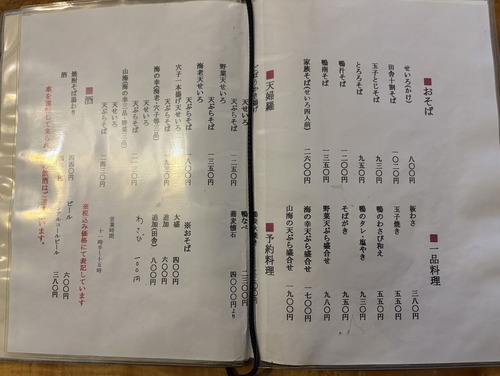 ■おそば
せいろ(かけ) 八〇〇円
田舎十割そば 一〇二〇円
玉子とじそば 九三〇円
とろろそば 九五〇円
鴨汁そば 一二〇〇円
鴨南そば 一三五〇円
家族そば(せいろ四人前) 二六〇〇円
■一品料理
板わさ 三八〇円
玉子焼き 五五〇円
鴨のわさび和え 五五〇円
鴨のタレ・塩やき 九五〇円
そばがき 九五〇円
野菜天ぷら盛合せ 九八〇円
海の幸天ぷら盛合せ 一七〇〇円
山海の天ぷら盛合せ 一九〇〇円
■天婦羅
天せいろ
天ぷらそば
野菜天せいろ
天ぷらそば 一二五〇円
海老天せいろ
天ぷらそば
穴子一本揚げ天せいろ
天ぷらそば
海の幸(海老・穴子等三品)
天せいろ
天ぷらそば
山海(海の幸三品・野菜三品)
天せいろ
天ぷらそば 二四三〇円
■予約料理
鴨なべ 二三〇〇円
蕎麦懐石 四〇〇〇円より
※おそば
大盛 四〇〇円
追加 六〇〇円
追加(田舎) 八〇〇円
わさび 一〇〇円
営業時間
■酒
焼酎そば湯わり 四五〇円
酒
ビール 六〇〇円
ノンアルコールビール 三八〇円
※税込み価格にて表記しています
車を運転して来られ
飲酒はご